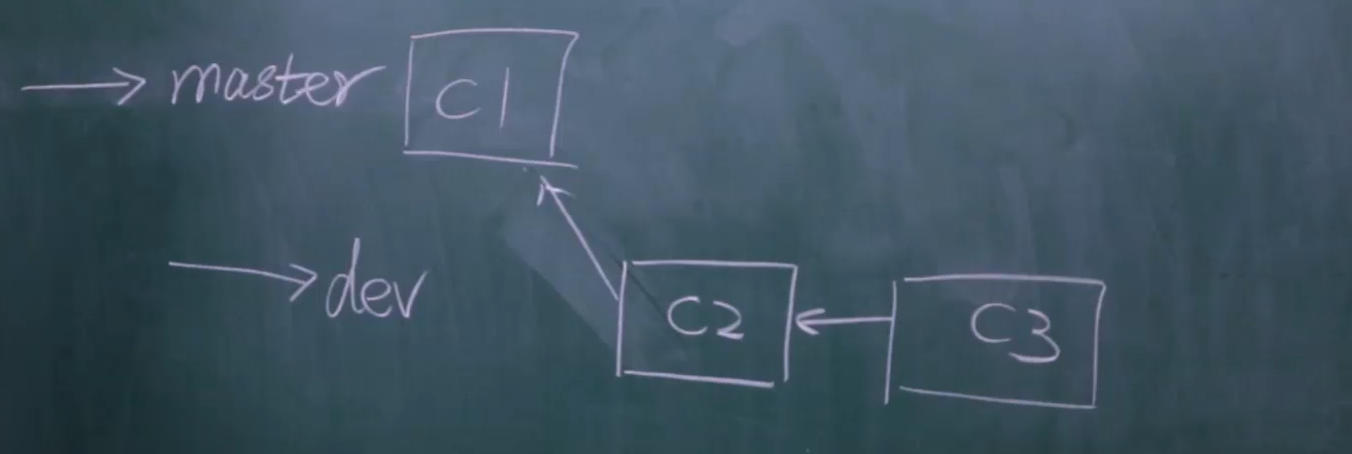 → master C1
→ dev C2 ← C3